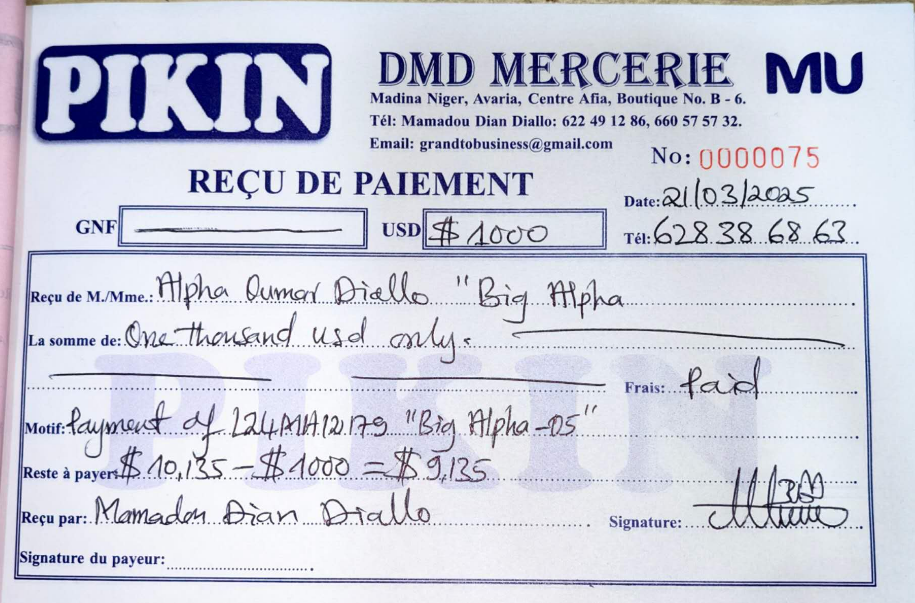 PIKIN
DMD MERCERIE
MU
Madina Niger, Avaria, Centre Afia, Boutique No. B - 6.
Tél: Mamadou Dian Diallo: 622 49 12 86, 660 57 57 32.
Email: grandtobusiness@gmail.com
No: 0000075
REÇU DE PAIEMENT
Date: 21/03/2025
GNF USD $ 1000
Tél: 628 38 68 63
Reçu de M./Mme.: Alpha Oumar Diallo "Big Alpha
La somme de: One thousand usd only.
Frais: Paid
PIKIN
Motif: Payment of L24MA12179 "Big Alpha-05"
Reste à payer: $ 10,135 - $ 1000 = $ 9,135
Reçu par: Mamadou Dian Diallo
Signature:
Signature du payeur: